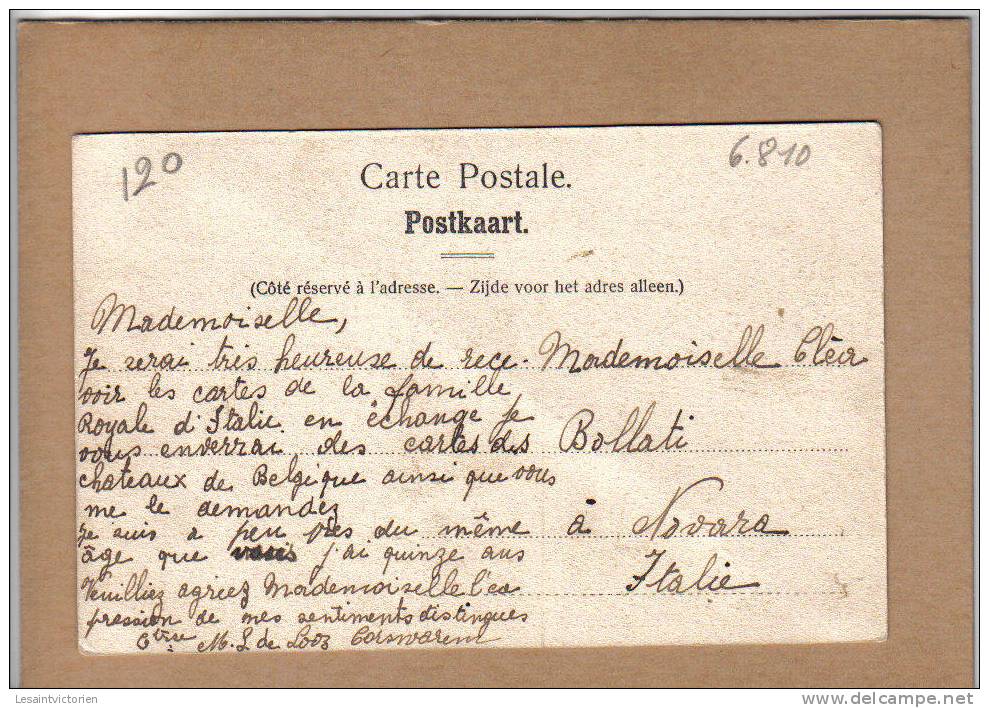 120
6.810
Carte Postale.
Postkaart.
(Côté réservé à l'adresse. — Zijde voor het adres alleen.)
Mademoiselle,
Je serai très heureuse de rece-
voir les cartes de la famille
Royale d'Italie en échange je
vous enverrai des cartes des
chateaux de Belgique ainsi que vous
me le demandez
Je suis a peu près du même
âge que vous j'ai quinze ans
Veuilliez agreez Mademoiselle l'ex
pression de mes sentiments distingues
Ctesse M. L de Looz Corswarem
Mademoiselle Cléa
Bollati
à Novara
Italie
Lesaintvictorien
www.delcampe.net